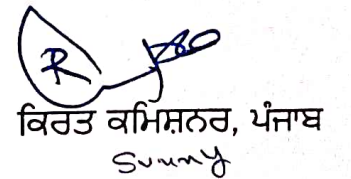 R
ਕਿਰਤ ਕਮਿਸ਼ਨਰ, ਪੰਜਾਬ
Sunny